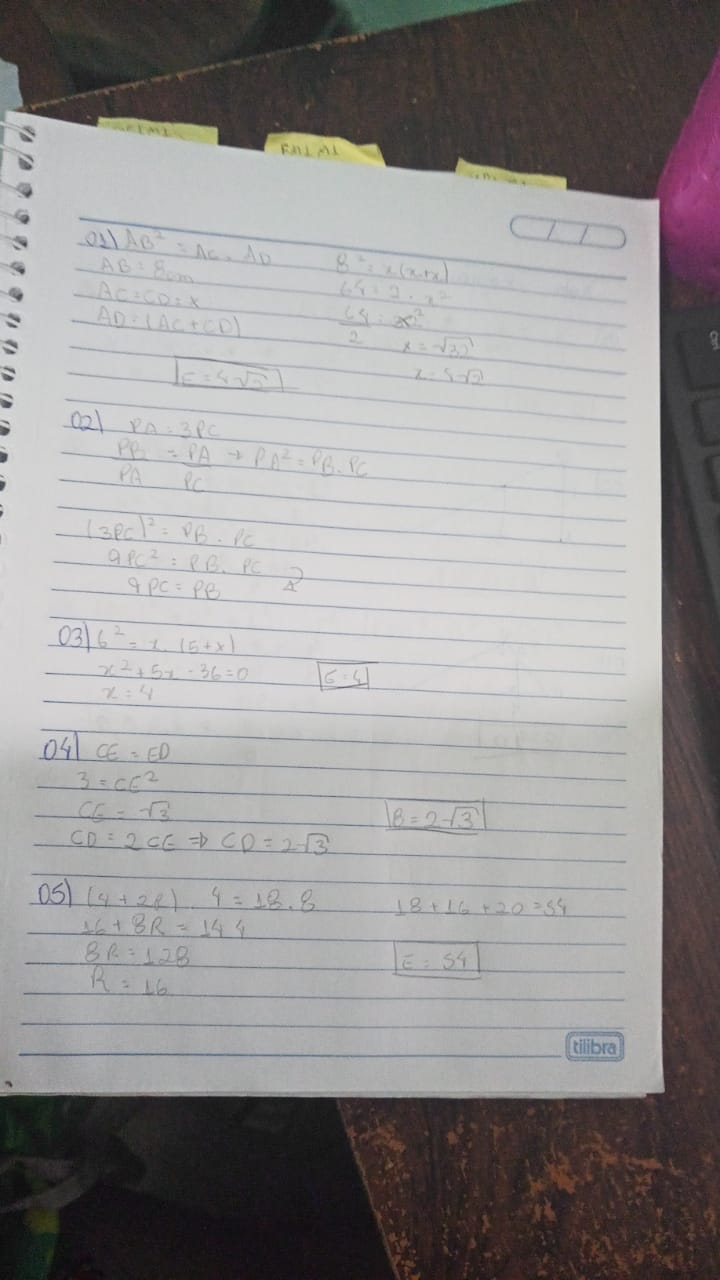 01) AB² = AC . AD
AB = 8cm
AC = CD = x
AD = (AC + CD)
8² = x(x+x)
64 = 2 . x²
64 = x²
2
x = √32
x = 4√2
E = 4√2
02) PA = 3PC
PB = PA → PA² = PB . PC
PA PC
(3PC)² = PB . PC
9PC² = PB . PC
9PC = PB
03) 6² = x . (5+x)
x² + 5x - 36 = 0
x = 4
E = 4
04) CE = ED
3 = CE²
CE = √3
CD = 2CE ⇒ CD = 2√3
B = 2√3
05) (4 + 2R) . 4 = 18 . 8
16 + 8R = 144
8R = 128
R = 16
18 + 16 + 20 = 54
E = 54
tilibra